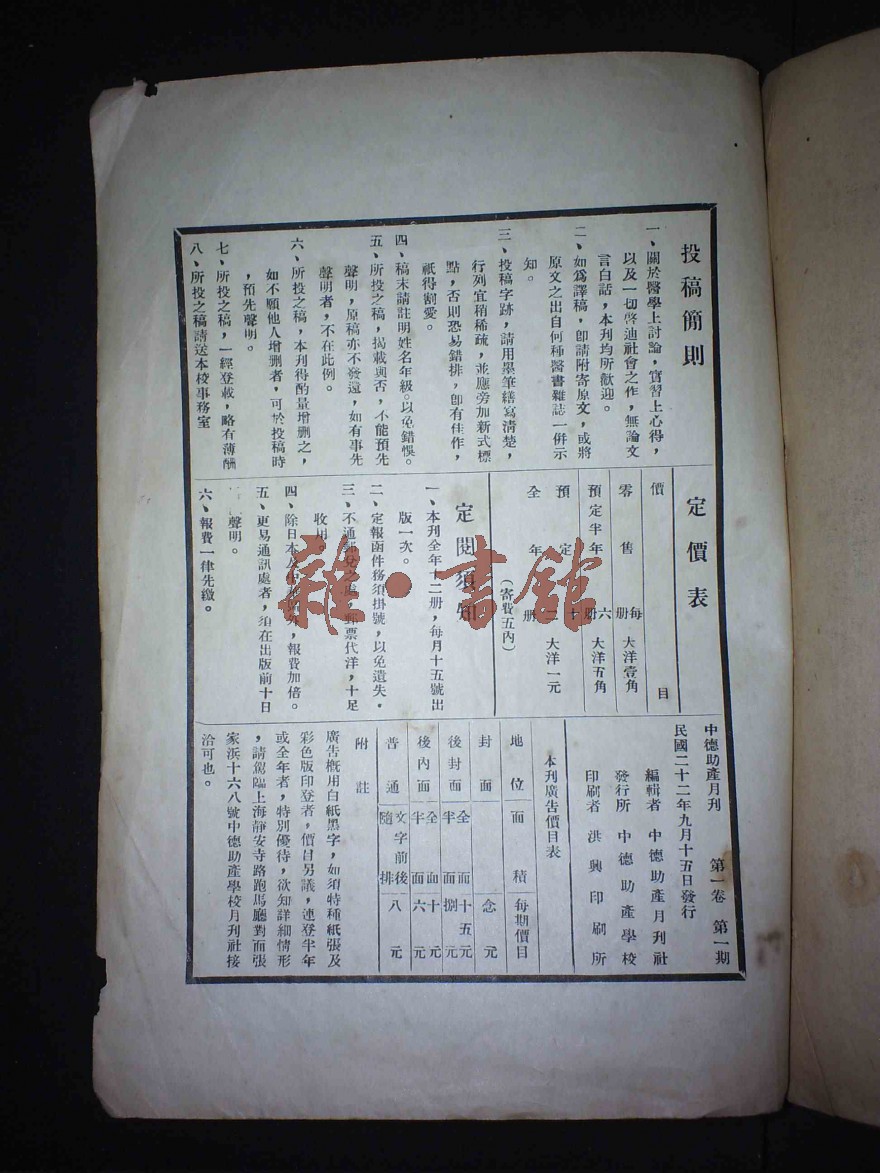 投稿簡則
一、關於醫學上討論，實習上心得，
以及一切啓迪社會之作，無論文
言白話，本刊均所歡迎。
二、如爲譯稿，卽請附寄原文，或將
原文之出自何種醫書雜誌一併示
知。
三、投稿字跡，請用墨筆繕寫清楚，
行列宜稍稀疏，並應旁加新式標
點，否則恐易錯排，卽有佳作，
祇得割愛。
四、稿末請註明姓名年級。以免錯悞。
五、所投之稿，揭載與否，不能預先
聲明，原稿亦不發還，如有事先
聲明者，不在此例。
六、所投之稿，本刊得酌量增删之，
如不願他人增删者，可於投稿時
，預先聲明。
七、所投之稿，一經登載，略有薄酬
八、所投之稿請送本校事務室
定價表
價目
零售每册大洋壹角
預定半年六册大洋五角
預定全年十二册大洋一元
（寄費五內）
定閱須知
一、本刊全年十二册，每月十五號出
版一次。
二、定報函件務須掛號，以免遺失。
三、不通郵兌之處，郵票代洋，十足
收用。
四、除日本及中國外，報費加倍。
五、更易通訊處者，須在出版前十日
聲明。
六、報費一律先繳。
中德助產月刊 第一卷 第一期
民國二十二年九月十五日發行
編輯者 中德助產月刊社
發行所 中德助產學校
印刷者 洪興印刷所
本刊廣告價目表
地位 面積 每期價目
封面 全面 念元
後封面 全面 十五元
半面 捌元
後內面 全面 十元
半面 六元
普通 文字前後隨排 八元
附註
廣告概用白紙黑字，如須特種紙張及
彩色版印登者，價目另議，連登半年
或全年者，特別優待，欲知詳細情形
，請駕臨上海靜安寺路跑馬廳對面張
家浜十六八號中德助產學校月刊社接
洽可也。
雜·書館